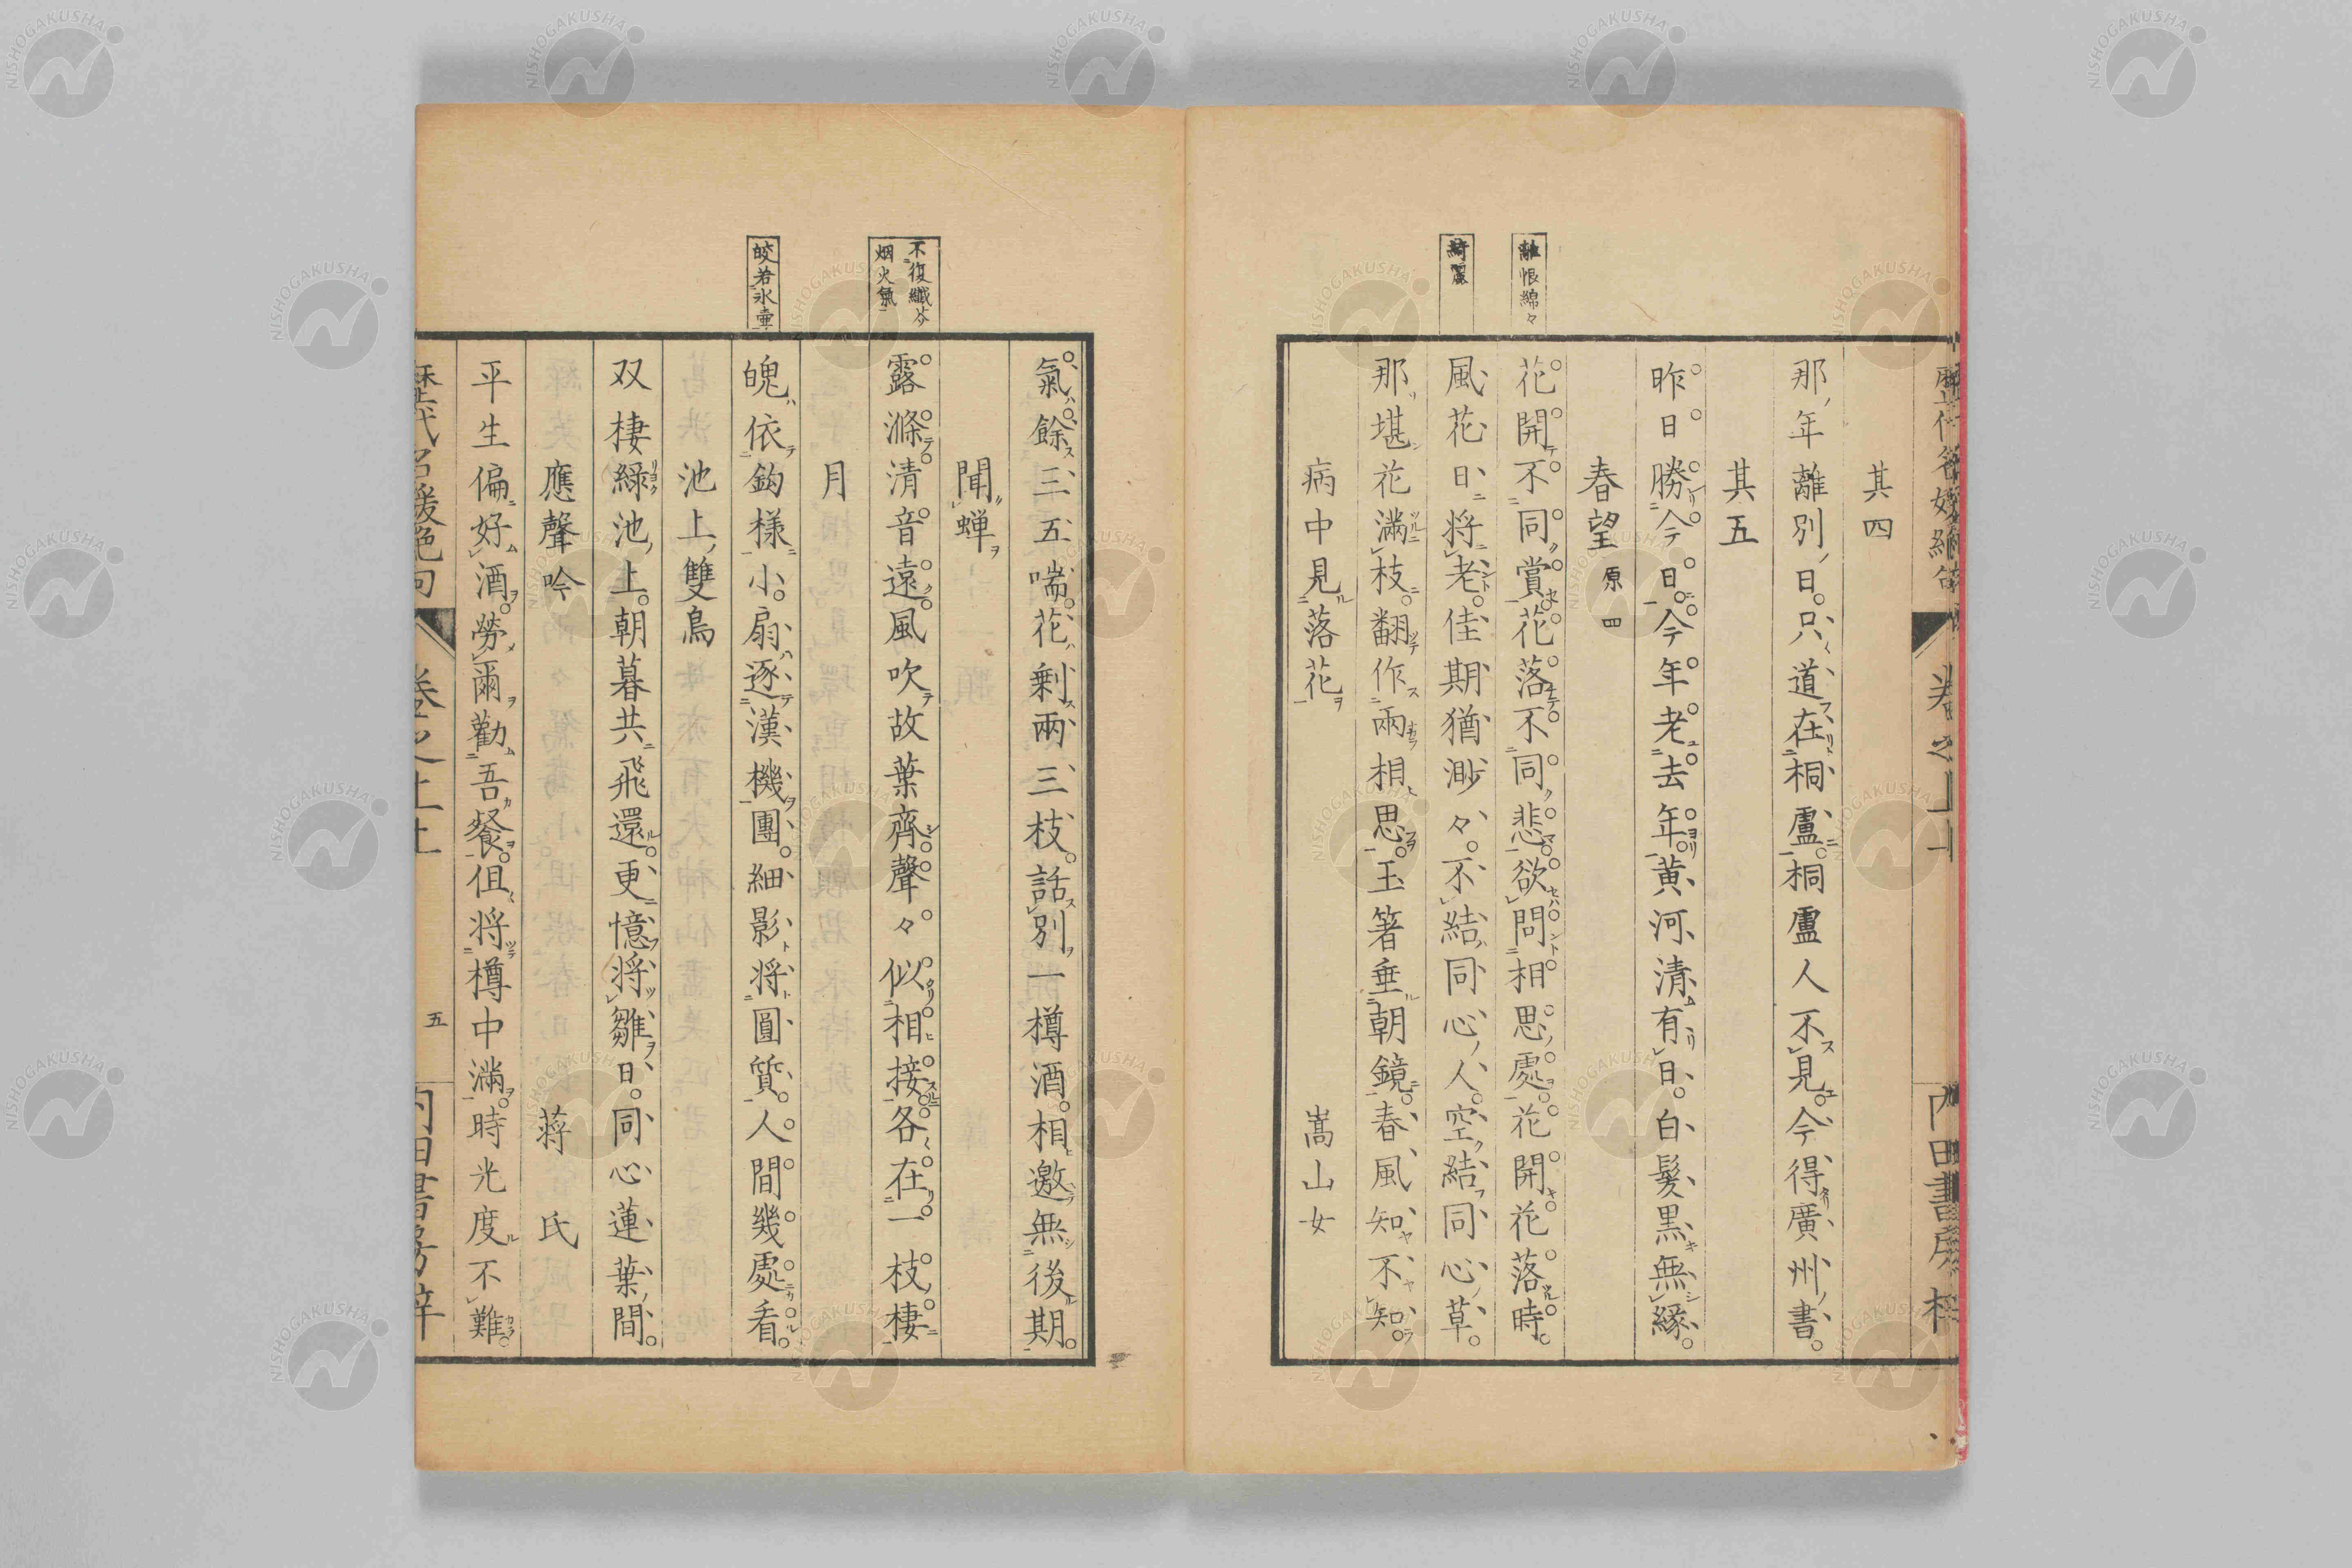 其四
那年離別日只道在桐廬桐廬人不見今得廣州書
其五
昨日勝今日今年老去年黃河清有日白髮黑無緣
春望 原四
離恨綿々
花開不同賞花落不同悲欲問相思處花開花落時
綺麗
風花日將老佳期猶渺々不結同心人空結同心草
那堪花滿枝翻作兩相思玉箸垂朝鏡春風知不知
病中見落花 嵩山女
氣餘三五喘花剩兩三枝話別一樽酒相邀無後期
聞蟬
不復纖芥
烟火氣
露滌清音遠風吹故葉齊聲々似相接各在一枝棲
月
皎若氷壷
魄依鈎樣小扇逐漢機團細影將圓質人間幾處看
池上雙鳥
双棲綠池上朝暮共飛還更憶將雛日同心蓮葉間
應聲吟 蔣氏
平生偏好酒勞爾勸吾餐但將樽中滿時光度不難
歷代名媛絕句 卷之上上 五
NISHOGAKUSHA